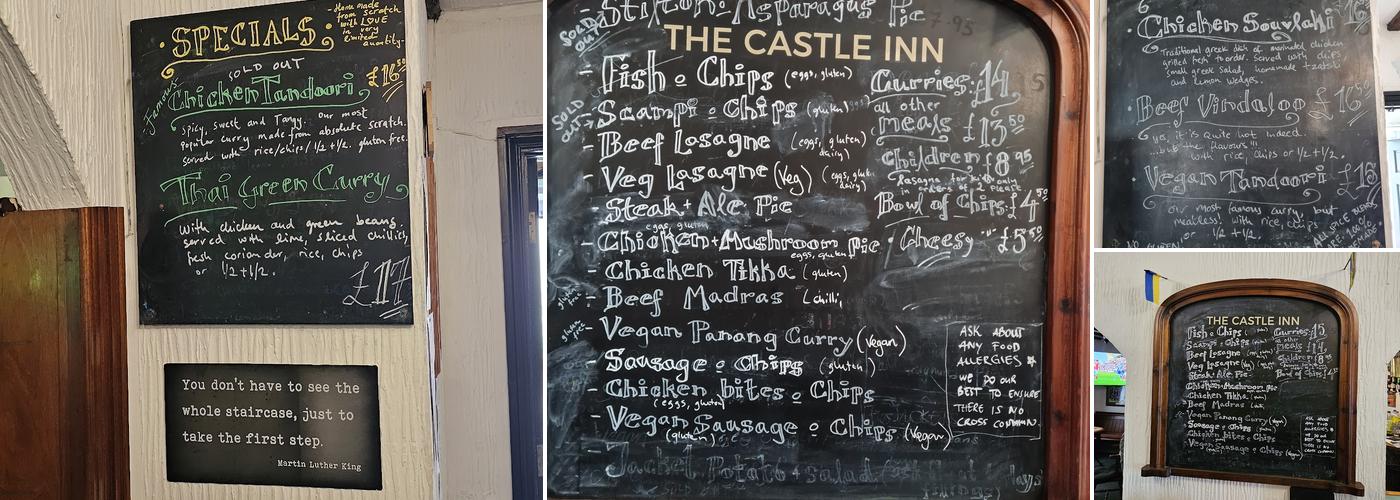 · SPECIALS:
- Home made
from scratch
with LOVE
in very
limited
quantity -
SOLD OUT
£16⁵⁰
Famous
Chicken Tandoori
spicy, sweet and Tangy. Our most
popular curry made from absolute scratch.
served with rice/chips/ 1/2 + 1/2. gluten free.
Thai Green Curry
With chicken and green beans.
served with lime, sliced chillies,
fresh coriander, rice, chips
or 1/2 + 1/2.
£17
You don't have to see the
whole staircase, just to
take the first step.
Martin Luther King
- Stilton & Asparagus Pie
7.95
SOLD OUT
THE CASTLE INN
- Fish & Chips (eggs, gluten)
SOLD OUT
- Scampi & Chips (gluten
- Beef Lasagne (eggs, gluten)
dairy)
- Veg Lasagne (Veg) (eggs, glut
dairy)
- Steak + Ale Pie
eggs, gluten
- Chicken + Mushroom Pie
eggs, gluten
- Chicken Tikka (gluten)
gluten free
- Beef Madras (chilli,
gluten free
- Vegan Panang Curry (Vegan)
- Sausage & Chips (gluten)
- Chicken bites & Chips
(eggs, gluten)
- Vegan Sausage & Chips (Vegan)
(gluten)
- Jacket Potato + Salad
Curries: 14
all other
meals £13⁵⁰
Children £8⁹⁵
Lasagne for kids only
in orders of 2 Please
Bowl of Chips: £4⁵⁰
· Cheesy "" £5⁵⁰
ASK ABOUT
ANY FOOD
ALLERGIES *
WE DO OUR
BEST TO ENSURE
THERE IS NO
CROSS CONTAM.
· Chicken Souvlaki
Traditional greek dish of marinated chicken
grilled fresh to order. Served with chips
small greek salad, homemade tzatziki
and lemon wedges.
· Beef Vindaloo £16⁵⁰
yes, it is quite hot indeed.
...but the flavours!!!
with rice, chips or 1/2 + 1/2.
· Vegan Tandoori £16
our most famous curry, but
meatless! with rice, chips,
or 1/2 + 1/2.
NO GLUTEN
ALL SPICE BLENDS
ARE 100%
THE CASTLE INN
Fish & Chips
Curries: 15
Scampi & Chips
all other
meals £14
Beef Lasagne
Children £8⁹⁵
Veg Lasagne
Steak + Ale Pie
Bowl of Chips £4⁵⁰
Chicken + Mushroom Pie
Chicken Tikka
Beef Madras
Vegan Panang Curry (Vegan)
Sausage & Chips
Chicken bites & Chips
Vegan Sausage & Chips (Vegan)
ASK ABOUT
ANY FOOD
ALLERGIES *
WE DO OUR
BEST TO ENSURE
THERE IS NO
CROSS CONTAM.